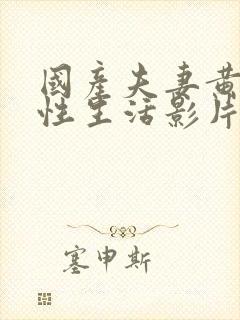 國產夫妻黃
性生活影片
塞申斯